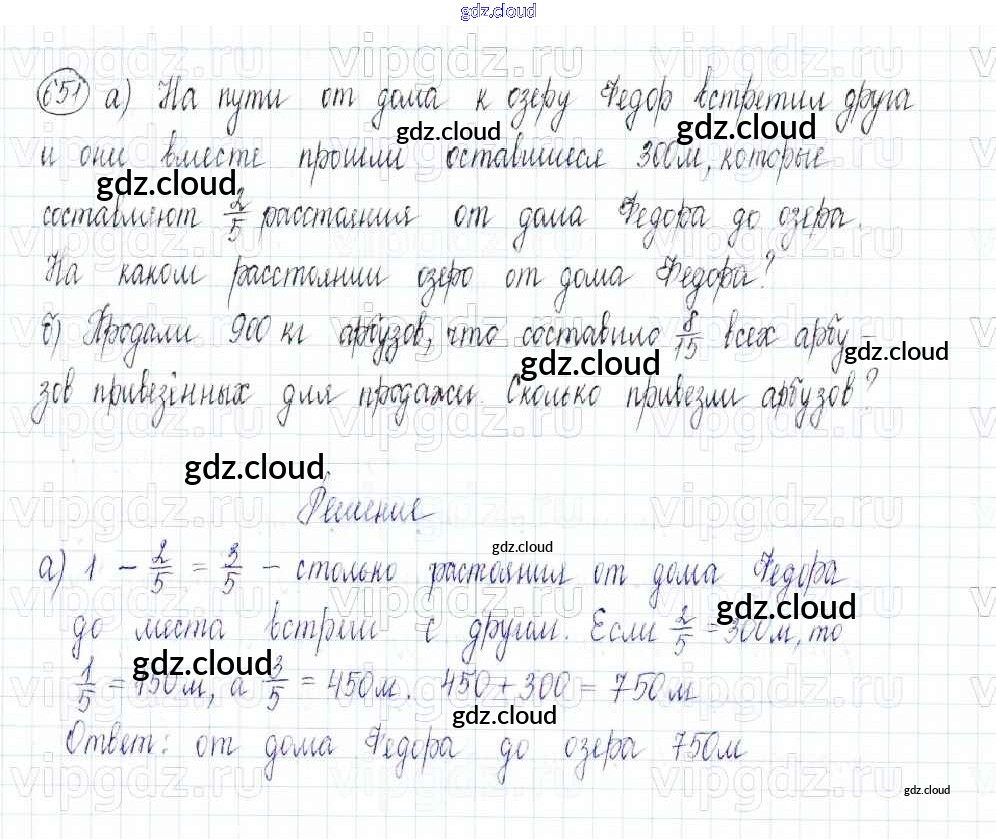 gdz.cloud
651 а) На пути от дома к озеру Федор встретил друга
и они вместе прошли оставшиеся 300м, которые
составляют 2/5 расстояния от дома Федора до озера.
На каком расстоянии озеро от дома Федора?
б) Продали 900 кг арбузов, что составило 8/15 всех арбу -
зов привезённых для продажи. Сколько привезли арбузов?
Решение
а) 1 - 2/5 = 3/5 - столько растояния от дома Федора
до места встречи с другом. Если 2/5 = 300м, то
1/5 = 150м, а 3/5 = 450м. 450 + 300 = 750м
Ответ: от дома Федора до озера 750м
gdz.cloud